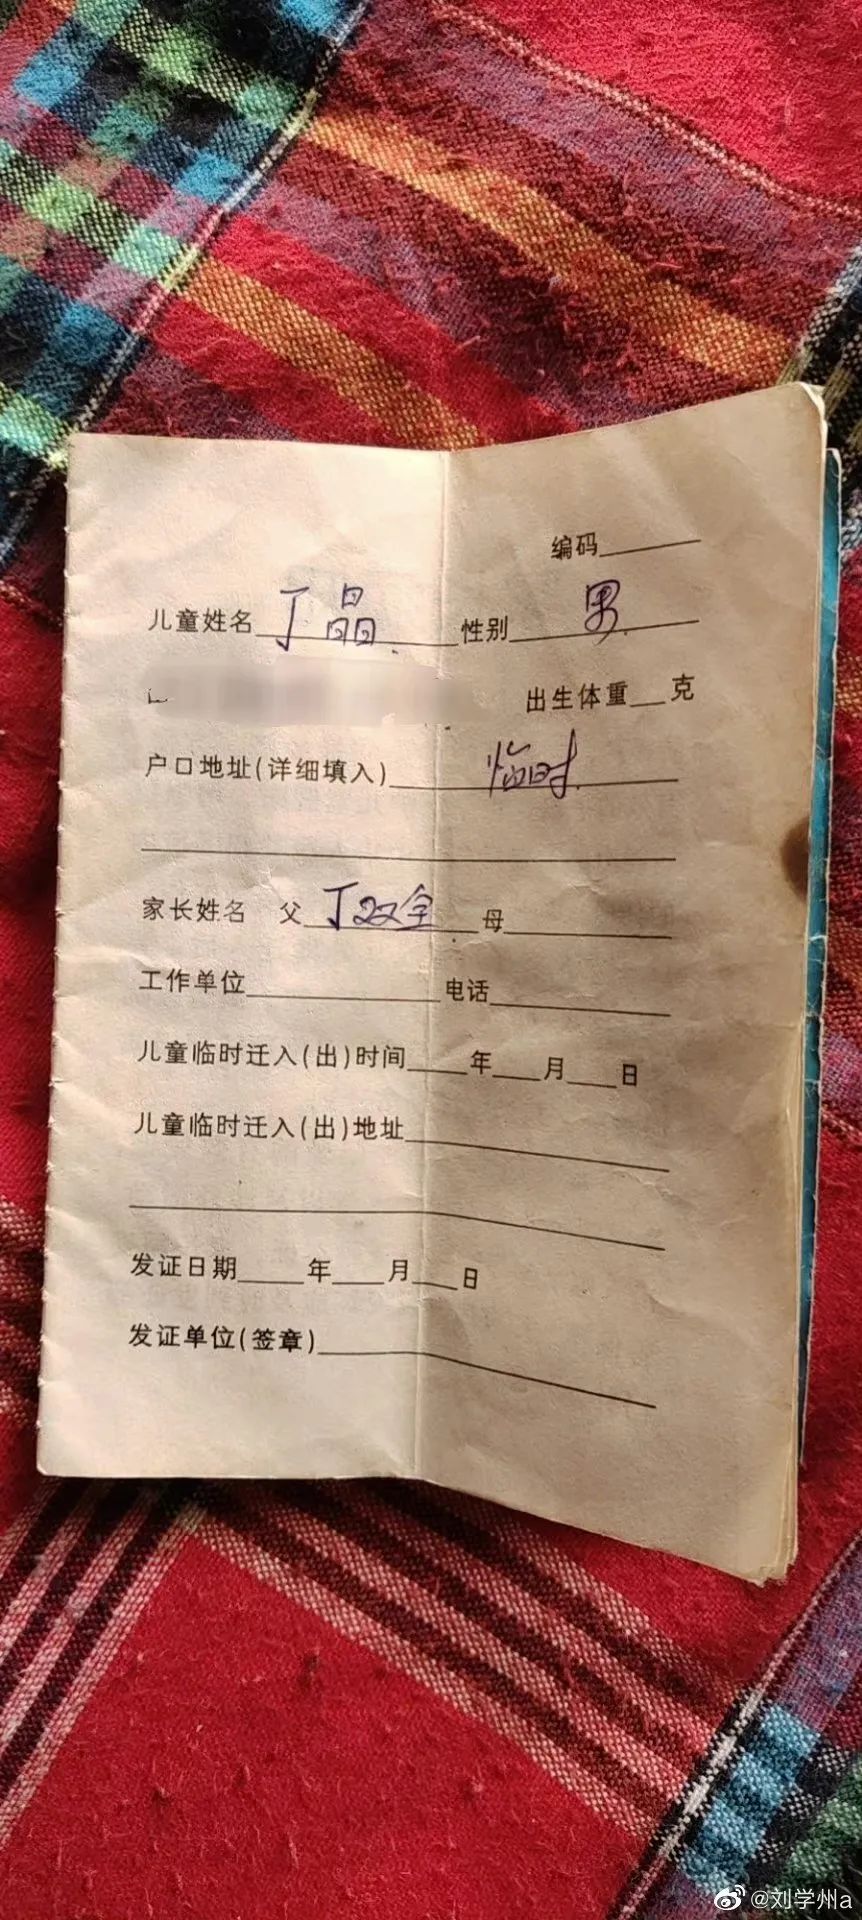 编码
儿童姓名 丁晶 性别 男
出生体重 克
户口地址(详细填入) 临时
家长姓名 父 丁双全 母
工作单位 电话
儿童临时迁入(出)时间 年 月 日
儿童临时迁入(出)地址
发证日期 年 月 日
发证单位(签章)
@刘学州a